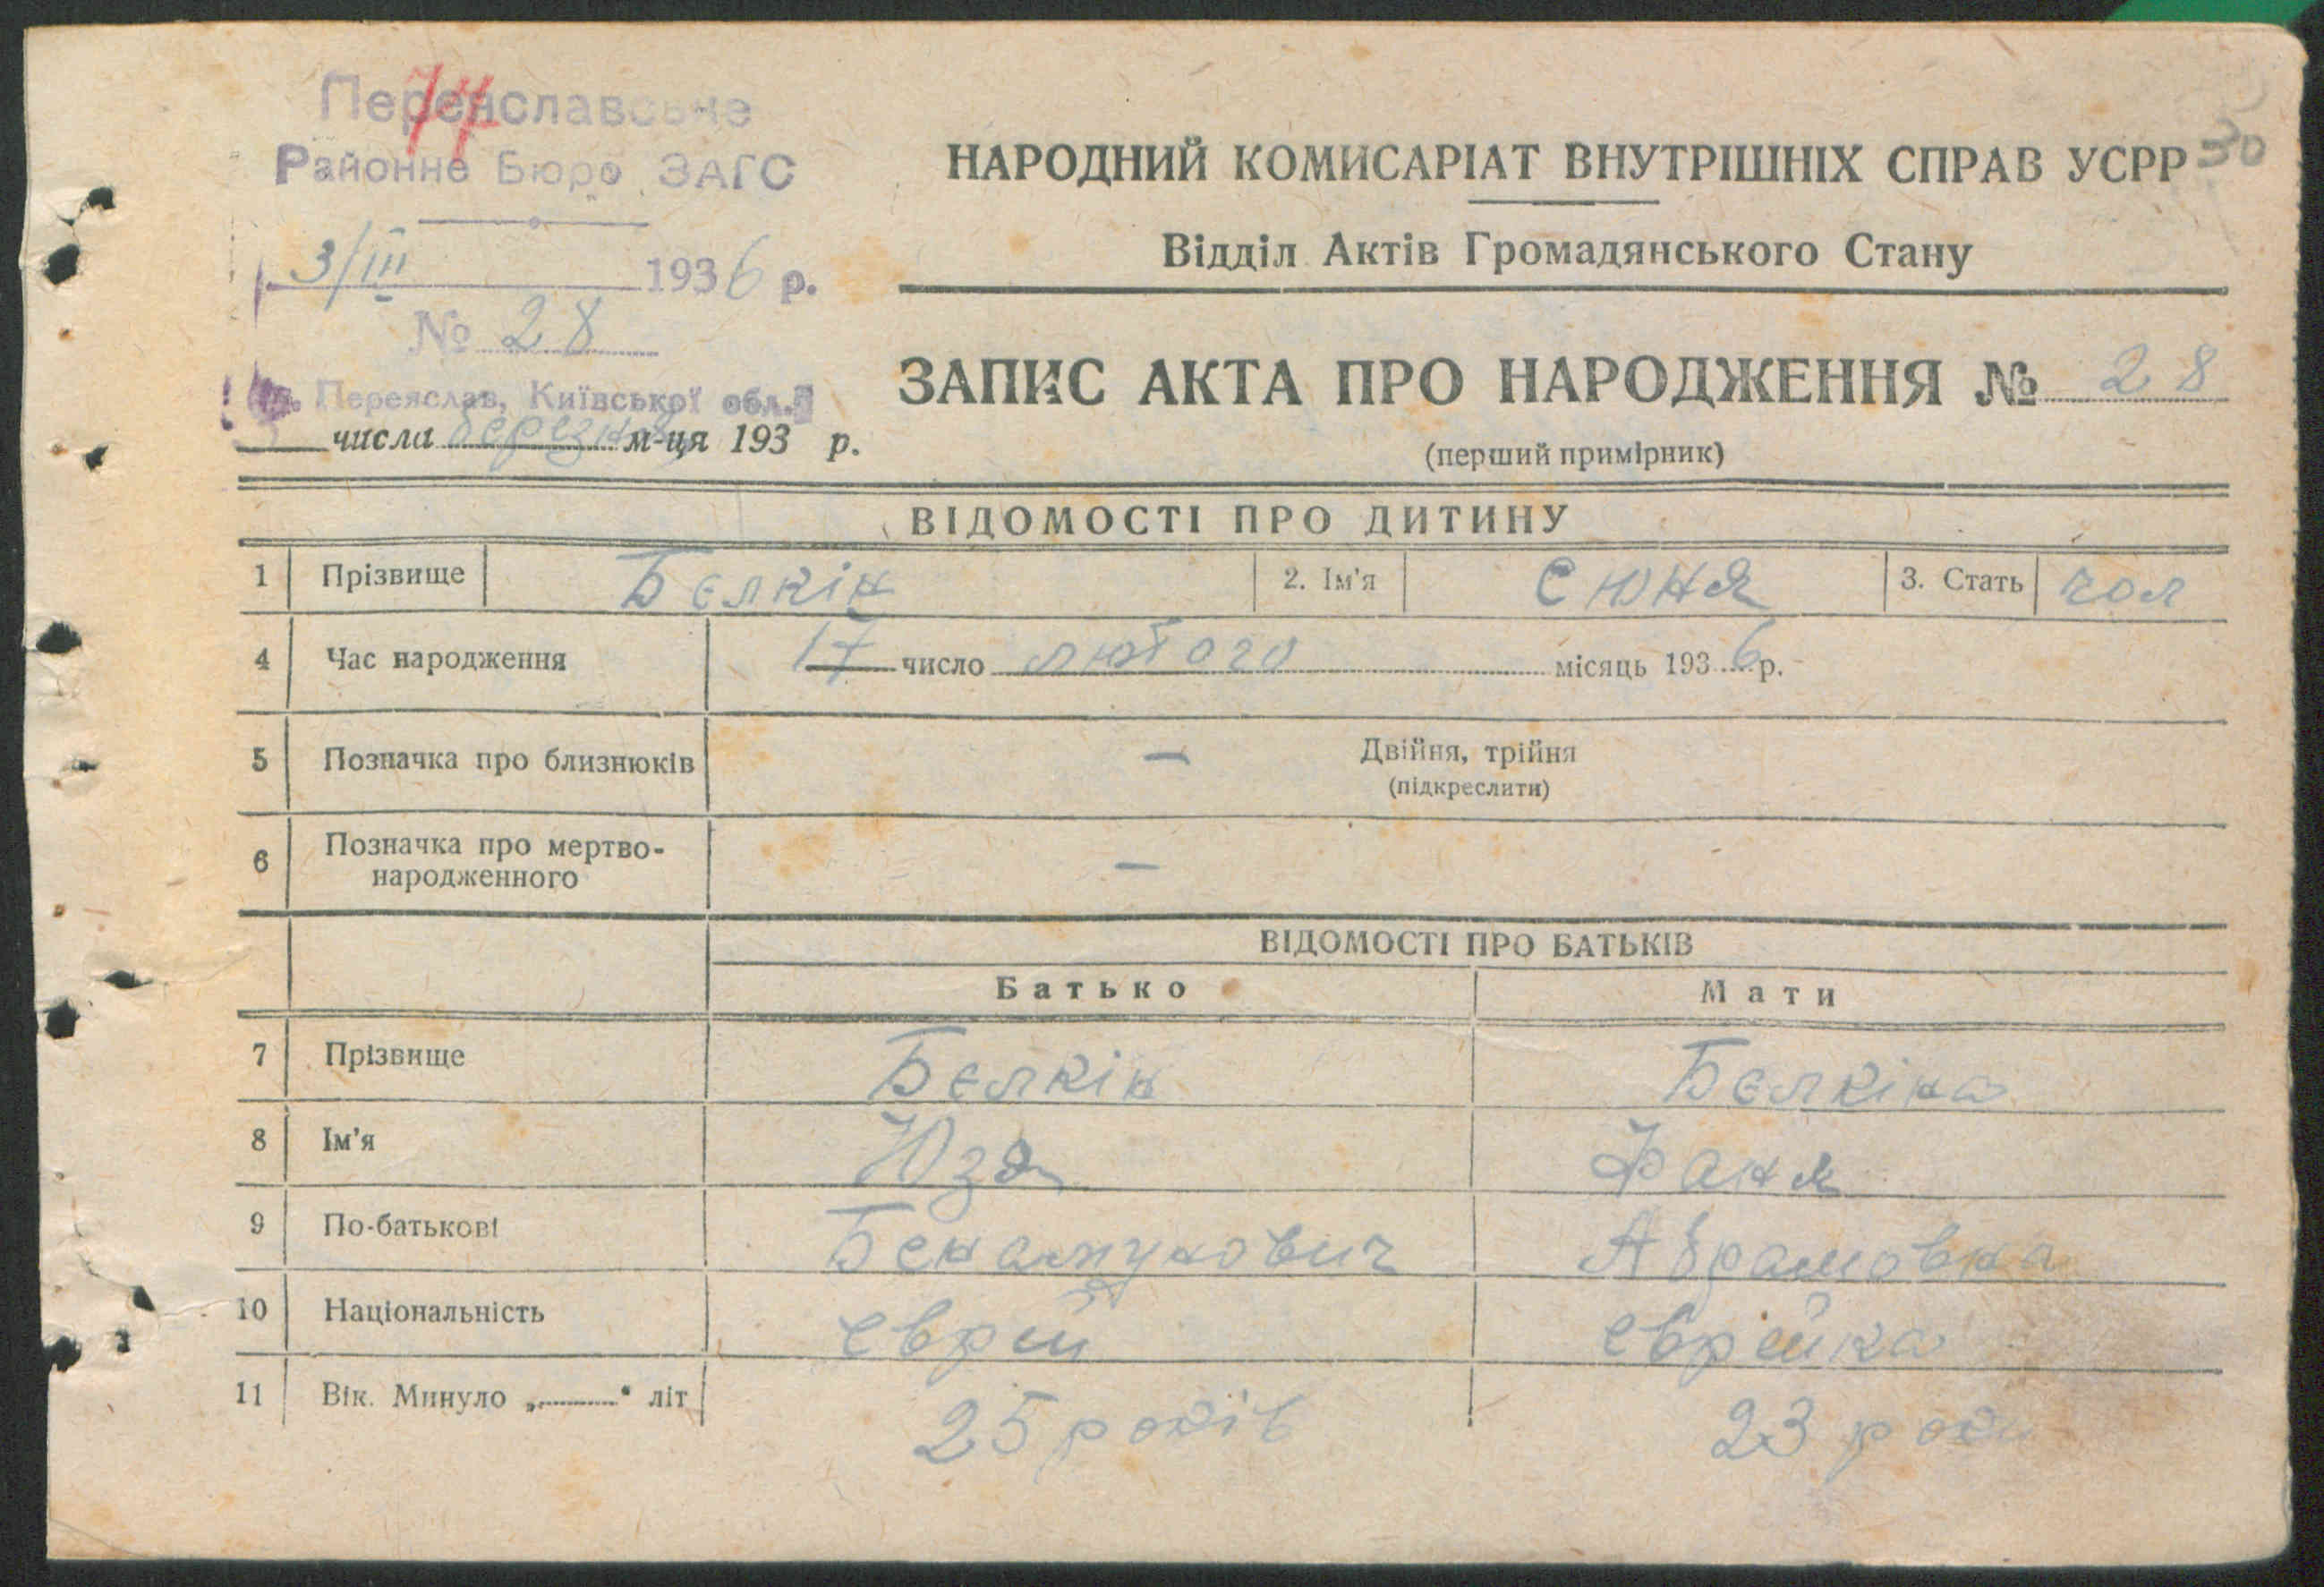 Переяславське
74
Районне Бюро ЗАГС
3/III 1936 р.
№ 28
Переяслав, Київської обл.
числа березня м-ця 193 р.
30
НАРОДНИЙ КОМИСАРІАТ ВНУТРІШНІХ СПРАВ УСРР
Відділ Актів Громадянського Стану
ЗАПИС АКТА ПРО НАРОДЖЕННЯ № 28
(перший примірник)
ВІДОМОСТІ ПРО ДИТИНУ
1 Прізвище Бєлкін 2. Ім'я Сюня 3. Стать чол
4 Час народження 17 число лютого місяць 1936 р.
5 Позначка про близнюків — Двійня, трійня
(підкреслити)
6 Позначка про мертво-
народженного —
ВІДОМОСТІ ПРО БАТЬКІВ
Батько Мати
7 Прізвище Бєлкін Бєлкіна
8 Ім'я Юзя Фаня
9 По-батькові Абрамовна
10 Національність єврей єврейка
11 Вік. Минуло „ " літ 25 років 23 роки